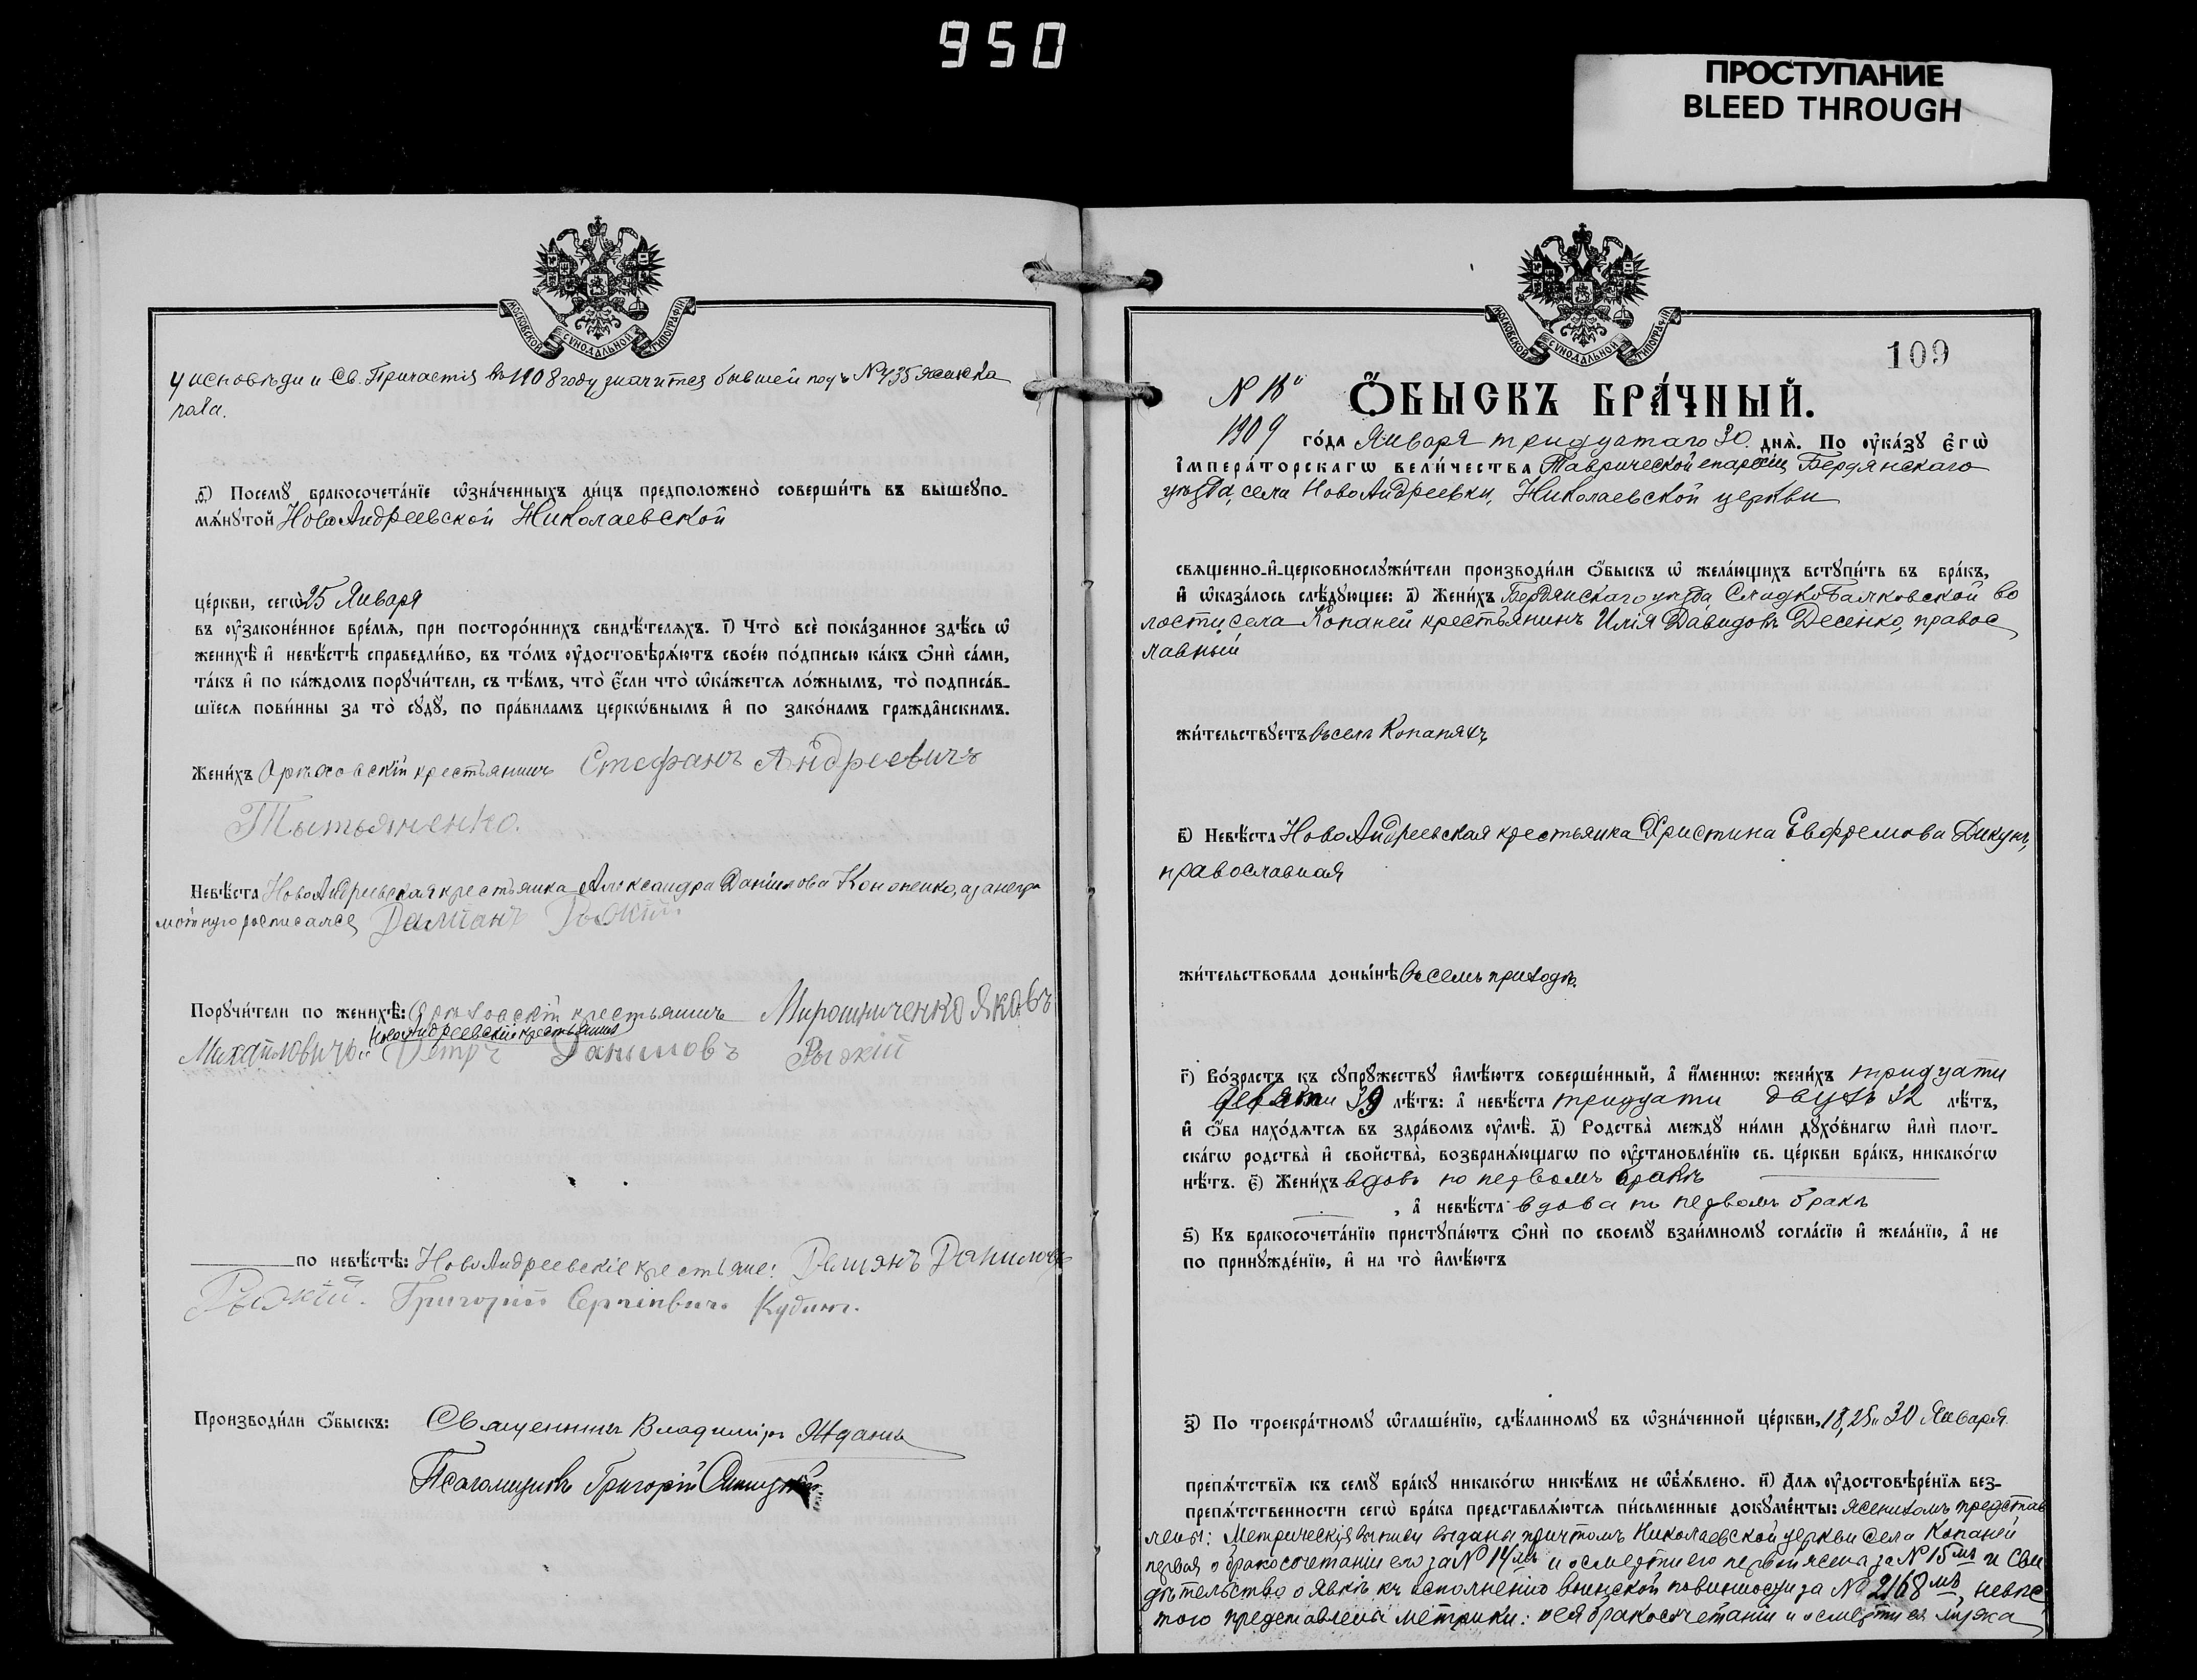 950
ПРОСТУПАНИЕ
BLEED THROUGH
МОСКОВСКОЙ СѴНОДАЛЬНОЙ ТИПОГРАФІИ
у исповѣди и Св. Причастія въ 1908 году значится бывшей подъ № 435 женска
пола.
ѳ) Посемꙋ бракосочета́нїе ѡзна́ченныхъ ли́цъ предположено̀ соверши́ть въ вышеꙋпо-
мѧ́нꙋтой НовоАндреевской Николаевской
це́ркви, сегѡ̀ 25 Января
въ ᲂу҆законе́нное вре́мѧ, при посторо́ннихъ свидѣ́телѧхъ. і҃) Что̀ всѐ пока́занное здѣ́сь ѡ҆
женихѣ̀ и҆ невѣ́стѣ справедли́во, въ то́мъ ᲂу҆достовѣрѧ́ютъ свое́ю по́дписью ка́къ ѻ҆нѝ са́ми,
та́къ и҆ по ка́ждомъ порꙋчи́тели, съ тѣ́мъ, что̀ є҆́сли что̀ ѡ҆ка́жетсѧ ло́жнымъ, то̀ подписа́в-
шїесѧ пови́нны за то̀ сꙋдꙋ̀, по пра́виламъ церкѡ́внымъ и҆ по зако́намъ гражда̑нскимъ.
Жени́хъ Орѣховскій крестьянинъ Стефанъ Андреевичъ
Тытьяненко.
Невѣ́ста НовоАндреевская крестьянка Александра Данілова Кононенко, а за негра
мотную росписался Даміанъ Рыжій.
Порꙋчи́тели по женихѣ̀: Орѣховскій крестьянинъ Мирошниченко Яковъ
НовоАндреевскій крестьянинъ
Михайловичъ и Петръ Даниловъ Рыжій
по невѣ́стѣ: НовоАндреевскіе крестьяне: Демянъ Даниловъ
Рыжій. Григорій Сергіевичъ
Производи́ли ѻ҆́быскъ: Священникъ Владиміръ Жданъ
Псаломщикъ Григорій
МОСКОВСКОЙ СѴНОДАЛЬНОЙ ТИПОГРАФІИ
109
№ 18й
Ѻ҆́БЫСКЪ БРА́ЧНЫЙ.
1909 го́да Января тридцатаго 30 днѧ̀. По ᲂу҆ка́зꙋ Є҆гѡ̀
І҆мпера́торскагѡ вели́чества Таврической епархіи Бердянскаго
уѣзда, села НовоАндреевки, Николаевской церкви
свѧщенно-и҆-церковнослꙋжи́тели производи́ли ѻ҆́быскъ ѡ҆ жела́ющихъ встꙋпи́ть въ бра́къ,
и҆ ѡ҆каза́лось слѣ́дꙋющее: а҃) Жени́хъ Бердянскаго уѣзда, СладкоБалковской во
лости, села Копаней крестьянинъ Илія Давидовъ Десенко, правос
лавный
жи́тельствꙋетъ въ селѣ Копаняхъ,
в҃) Невѣ́ста НовоАндреевская крестьянка Христина Евфремова Дикунъ,
православная
жи́тельствовала доны́нѣ въ семъ приходѣ.
г҃) Во́зрастъ къ сꙋпрꙋ́жествꙋ и҆мѣ́ютъ соверше́нный, а҆ и҆́меннѡ: жени́хъ тридцати
девяти 39 лѣ́тъ: а҆ невѣ́ста тридцати двухъ 32 лѣ́тъ,
и҆ ѻ҆́ба нахо́дѧтсѧ въ здра́вомъ ᲂу҆мѣ̀. д҃) Родства̀ междꙋ̀ ни́ми дꙋхо́внагѡ и҆лѝ плот-
ска́гѡ родства̀ и҆ сво́йства̀, возбранѧ́ющагѡ по ᲂу҆становле́нїю св. це́ркви бра́къ, никако́гѡ
нѣ́тъ. є҃) Жени́хъ вдовъ по первомъ бракѣ
, а҆ невѣ́ста вдова по первомъ бракѣ
ѕ҃) Къ бракосочета́нїю пристꙋпа́ютъ ѻ҆нѝ по своемꙋ̀ взаи́мномꙋ согла́сїю и҆ жела́нїю, а҆ не
по принꙋжде́нїю, и҆ на то̀ и҆мѣ́ютъ
з҃) По троекра́тномꙋ ѡ҆глаше́нїю, сдѣ́ланномꙋ въ ѡ҆зна́ченной це́ркви, 18, 25 и 30 Января
препѧ́тствїѧ къ семꙋ̀ бра́кꙋ никако́гѡ никѣ́мъ не ѡ҆б̾ѧ́влено. и҃) Длѧ ᲂу҆достовѣре́нїѧ без-
препѧ́тственности сегѡ̀ бра́ка представлѧ́ютсѧ пи́сьменные докꙋме́нты: женихомъ представ
лены: Метрическія выписи выданы причтомъ Николаевской церкви села Копаней
первая о бракосочетаніи его за № 14мъ и о смерти его первой жены за № 15мъ и сви
дѣтельство о явкѣ къ исполненію воинской повинности за № 2168мъ, невѣс
тою представлены метрики: о ея бракосочетаніи и о смерти ея мужа